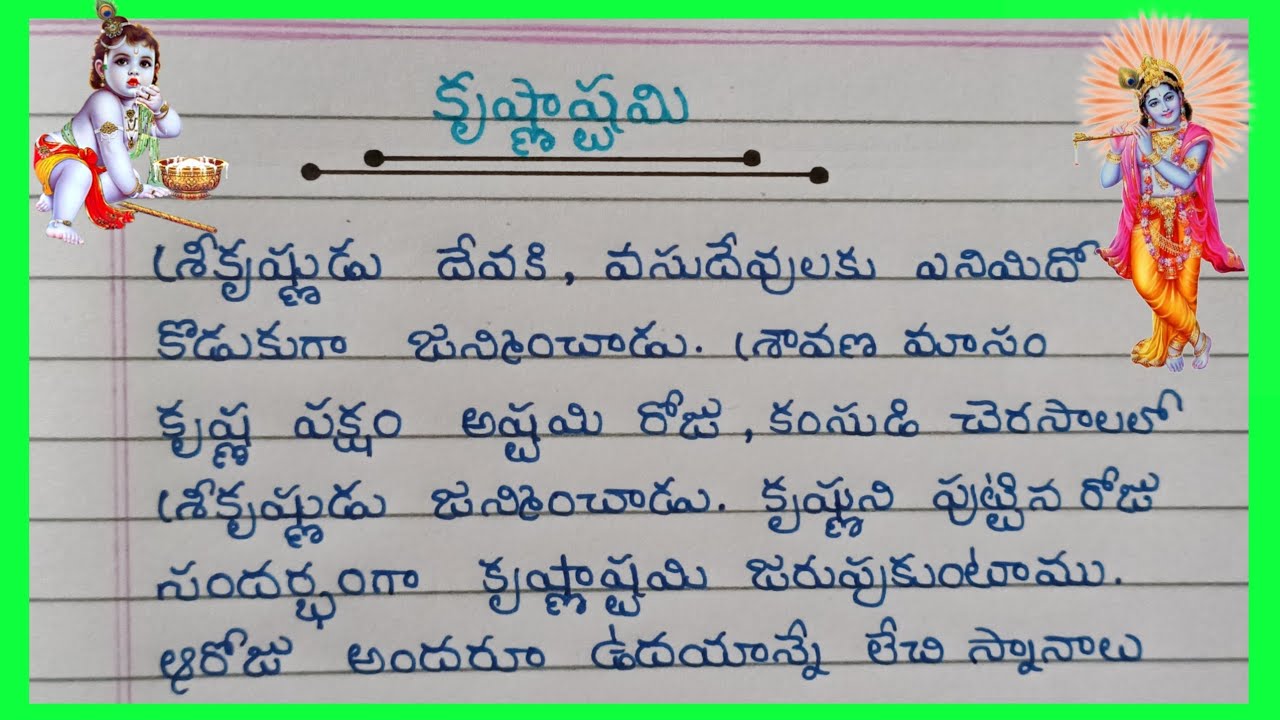 కృష్ణాష్టమి
శ్రీకృష్ణుడు దేవకి, వసుదేవులకు ఎనిమిదో
కొడుకుగా జన్మించాడు. శ్రావణ మాసం
కృష్ణ పక్షం అష్టమి రోజు, కంసుడి చెరసాలలో
శ్రీకృష్ణుడు జన్మించాడు. కృష్ణుని పుట్టిన రోజు
సందర్భంగా కృష్ణాష్టమి జరుపుకుంటాము.
ఆరోజు అందరూ ఉదయాన్నే లేచి స్నానాలు